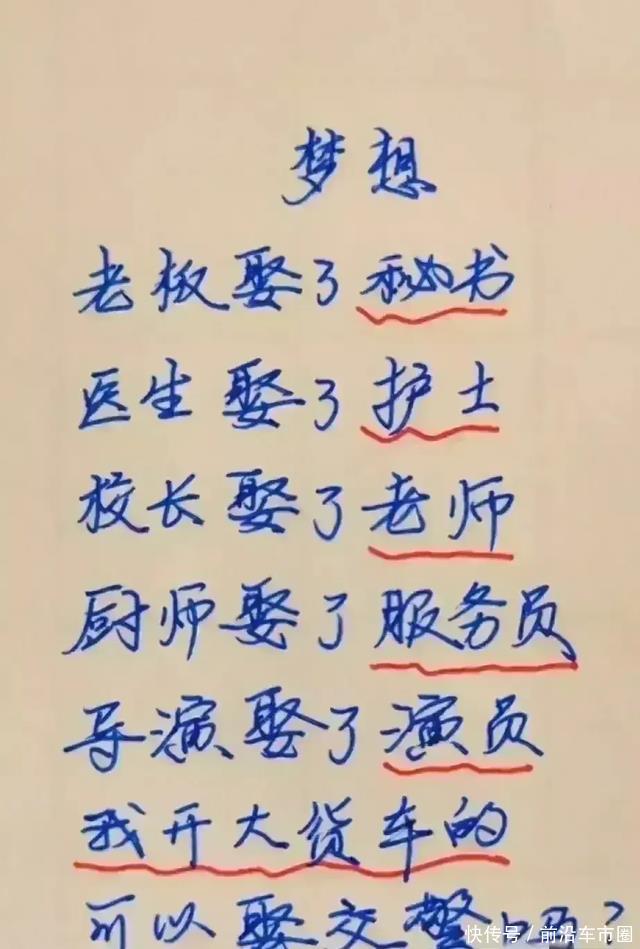 梦想
老板娶了秘书
医生娶了护士
校长娶了老师
厨师娶了服务员
导演娶了演员
我开大货车的
可以娶交警吗?
快传号/前沿车市圈